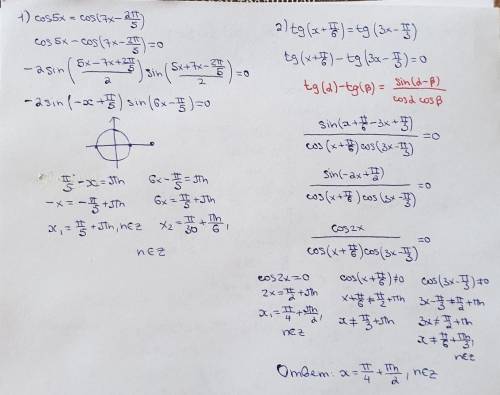 1) cos5x = cos(7x - 2π/5)
cos5x - cos(7x - 2π/5) = 0
-2sin((5x - 7x + 2π/5)/2) sin((5x + 7x - 2π/5)/2) = 0
-2sin(-x + π/5) sin(6x - π/5) = 0
π/5 - x = πn    6x - π/5 = πn
-x = -π/5 + πn    6x = π/5 + πn
x₁ = π/5 + πn, n∈z    x₂ = π/30 + πn/6,
n∈z
2) tg(x + π/6) = tg(3x - π/3)
tg(x + π/6) - tg(3x - π/3) = 0
tg(α) - tg(β) = sin(α-β)/(cosα cosβ)
sin(x + π/6 - 3x + π/3)/(cos(x + π/6) cos(3x - π/3)) = 0
sin(-2x + π/2)/(cos(x + π/6) cos(3x - π/3)) = 0
cos2x/(cos(x + π/6) cos(3x - π/3)) = 0
cos2x = 0    cos(x + π/6) ≠ 0    cos(3x - π/3) ≠ 0
2x = π/2 + πn    x + π/6 ≠ π/2 + πn    3x - π/3 ≠ π/2 + πn
x₁ = π/4 + πn/2,    x ≠ π/3 + πn    3x ≠ π/2 + πn
n∈z    x ≠ π/6 + πn/3,
n∈z
Ответ: x = π/4 + πn/2, n∈z